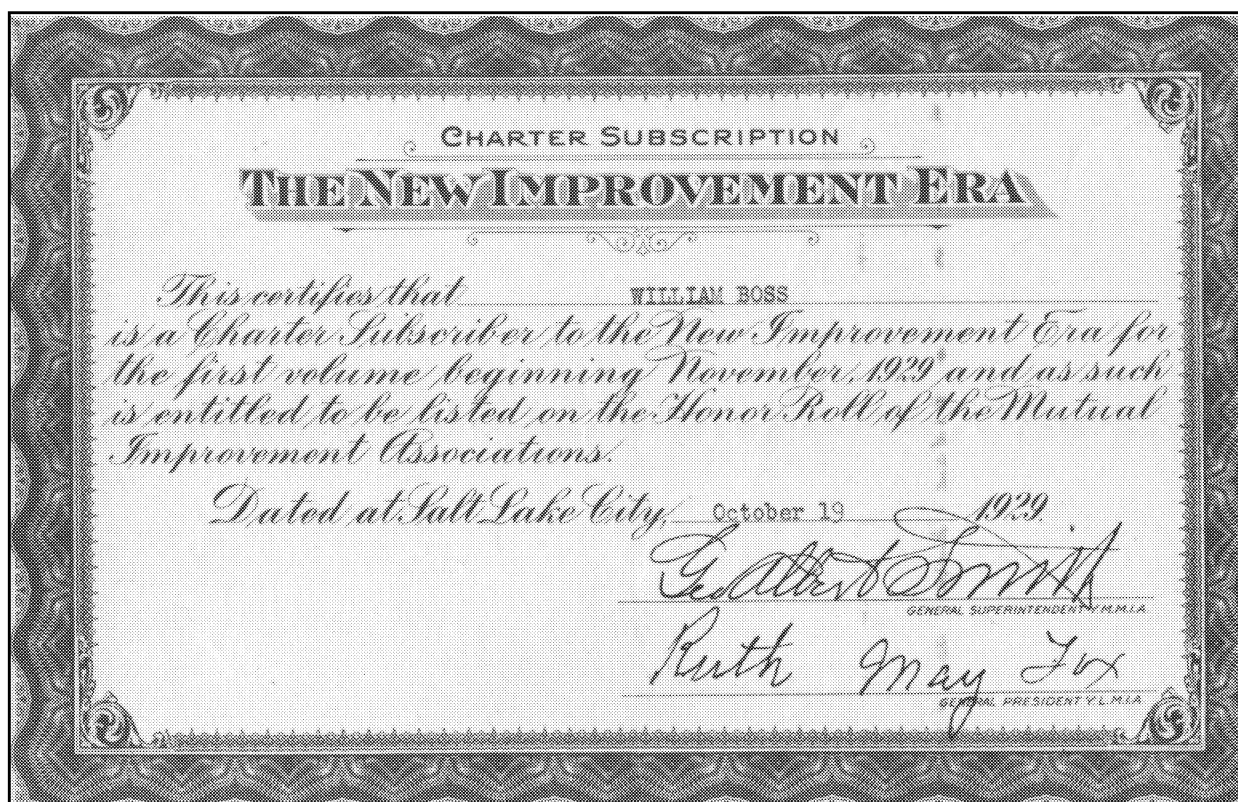 CHARTER SUBSCRIPTION
THE NEW IMPROVEMENT ERA
This certifies that WILLIAM BOSS
is a Charter Subscriber to the New Improvement Era for
the first volume beginning November, 1929 and as such
is entitled to be listed on the Honor Roll of the Mutual
Improvement Associations.
Dated at Salt Lake City, October 19 1929.
Geo Albert Smith
GENERAL SUPERINTENDENT Y.M.M.I.A.
Ruth May Fox
GENERAL PRESIDENT Y.L.M.I.A.